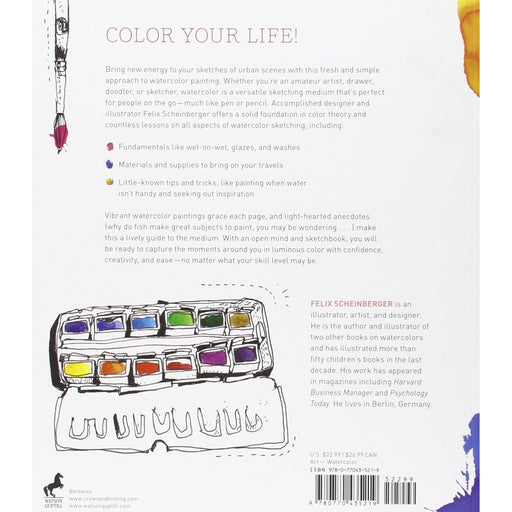 COLOR YOUR LIFE!
Bring new energy to your sketches of urban scenes with this fresh and simple
approach to watercolor painting. Whether you're an amateur artist, drawer,
doodler, or sketcher, watercolor is a versatile sketching medium that's perfect
for people on the go—much like pen or pencil. Accomplished designer and
illustrator Felix Scheinberger offers a solid foundation in color theory and
countless lessons on all aspects of watercolor sketching, including:
Fundamentals like wet-on-wet, glazes, and washes
Materials and supplies to bring on your travels
Little-known tips and tricks, like painting when water
isn't handy and seeking out inspiration
Vibrant watercolor paintings grace each page, and light-hearted anecdotes
(why do fish make great subjects to paint, you may be wondering . . .) make
this a lively guide to the medium. With an open mind and sketchbook, you will
be ready to capture the moments around you in luminous color with confidence,
creativity, and ease—no matter what your skill level may be.
FELIX SCHEINBERGER is an
illustrator, artist, and designer.
He is the author and illustrator of
two other books on watercolors
and has illustrated more than
fifty children's books in the last
decade. His work has appeared
in magazines including Harvard
Business Manager and Psychology
Today. He lives in Berlin, Germany.
U.S. $22.99 / $26.99 CAN
Art — Watercolor
ISBN 978-0-77043-521-9
52299
9 780770 435219
WATSON
GUPTILL
Berkeley
www.crownpublishing.com
www.watsonguptill.com